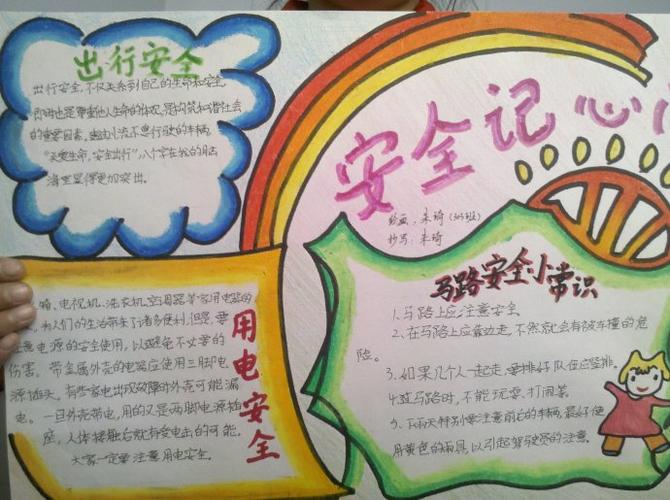 出行安全
出行安全,不仅关系到自己的生命和安全,
即时也是尊重他人生命的体现,是构筑和谐社会
的重要因素,幽幽小流不息行驶的车辆,
"关爱生命,安全出行",八个字在我的脑
海里显得更加突出。
安全记心
绘画:朱琦(303班)
抄写:朱琦
马路安全小常识
1.马路上应注意安全
2、在马路上应靠边走,不然就会有被车撞的危
险。
3、如果几个人一起走,要排好队伍竖排。
4.过马路时,不能玩耍、打闹等
5、下雨天特别要注意前后的车辆,最好使
用黄色的雨具,以引起驾驶员的注意。
用电安全
箱、电视机、洗衣机、空调器等家用电器的
,为人们的生活带来了诸多便利,但是,要
注意电源的安全使用,以避免不必要的
伤害。带金属外壳的电器应使用三脚电
源插头。有些家电出现故障时外壳可能漏
电。一旦外壳带电,用的又是两脚电源插
座,人体接触后就有受电击的可能。
大家一定要注意用电安全。